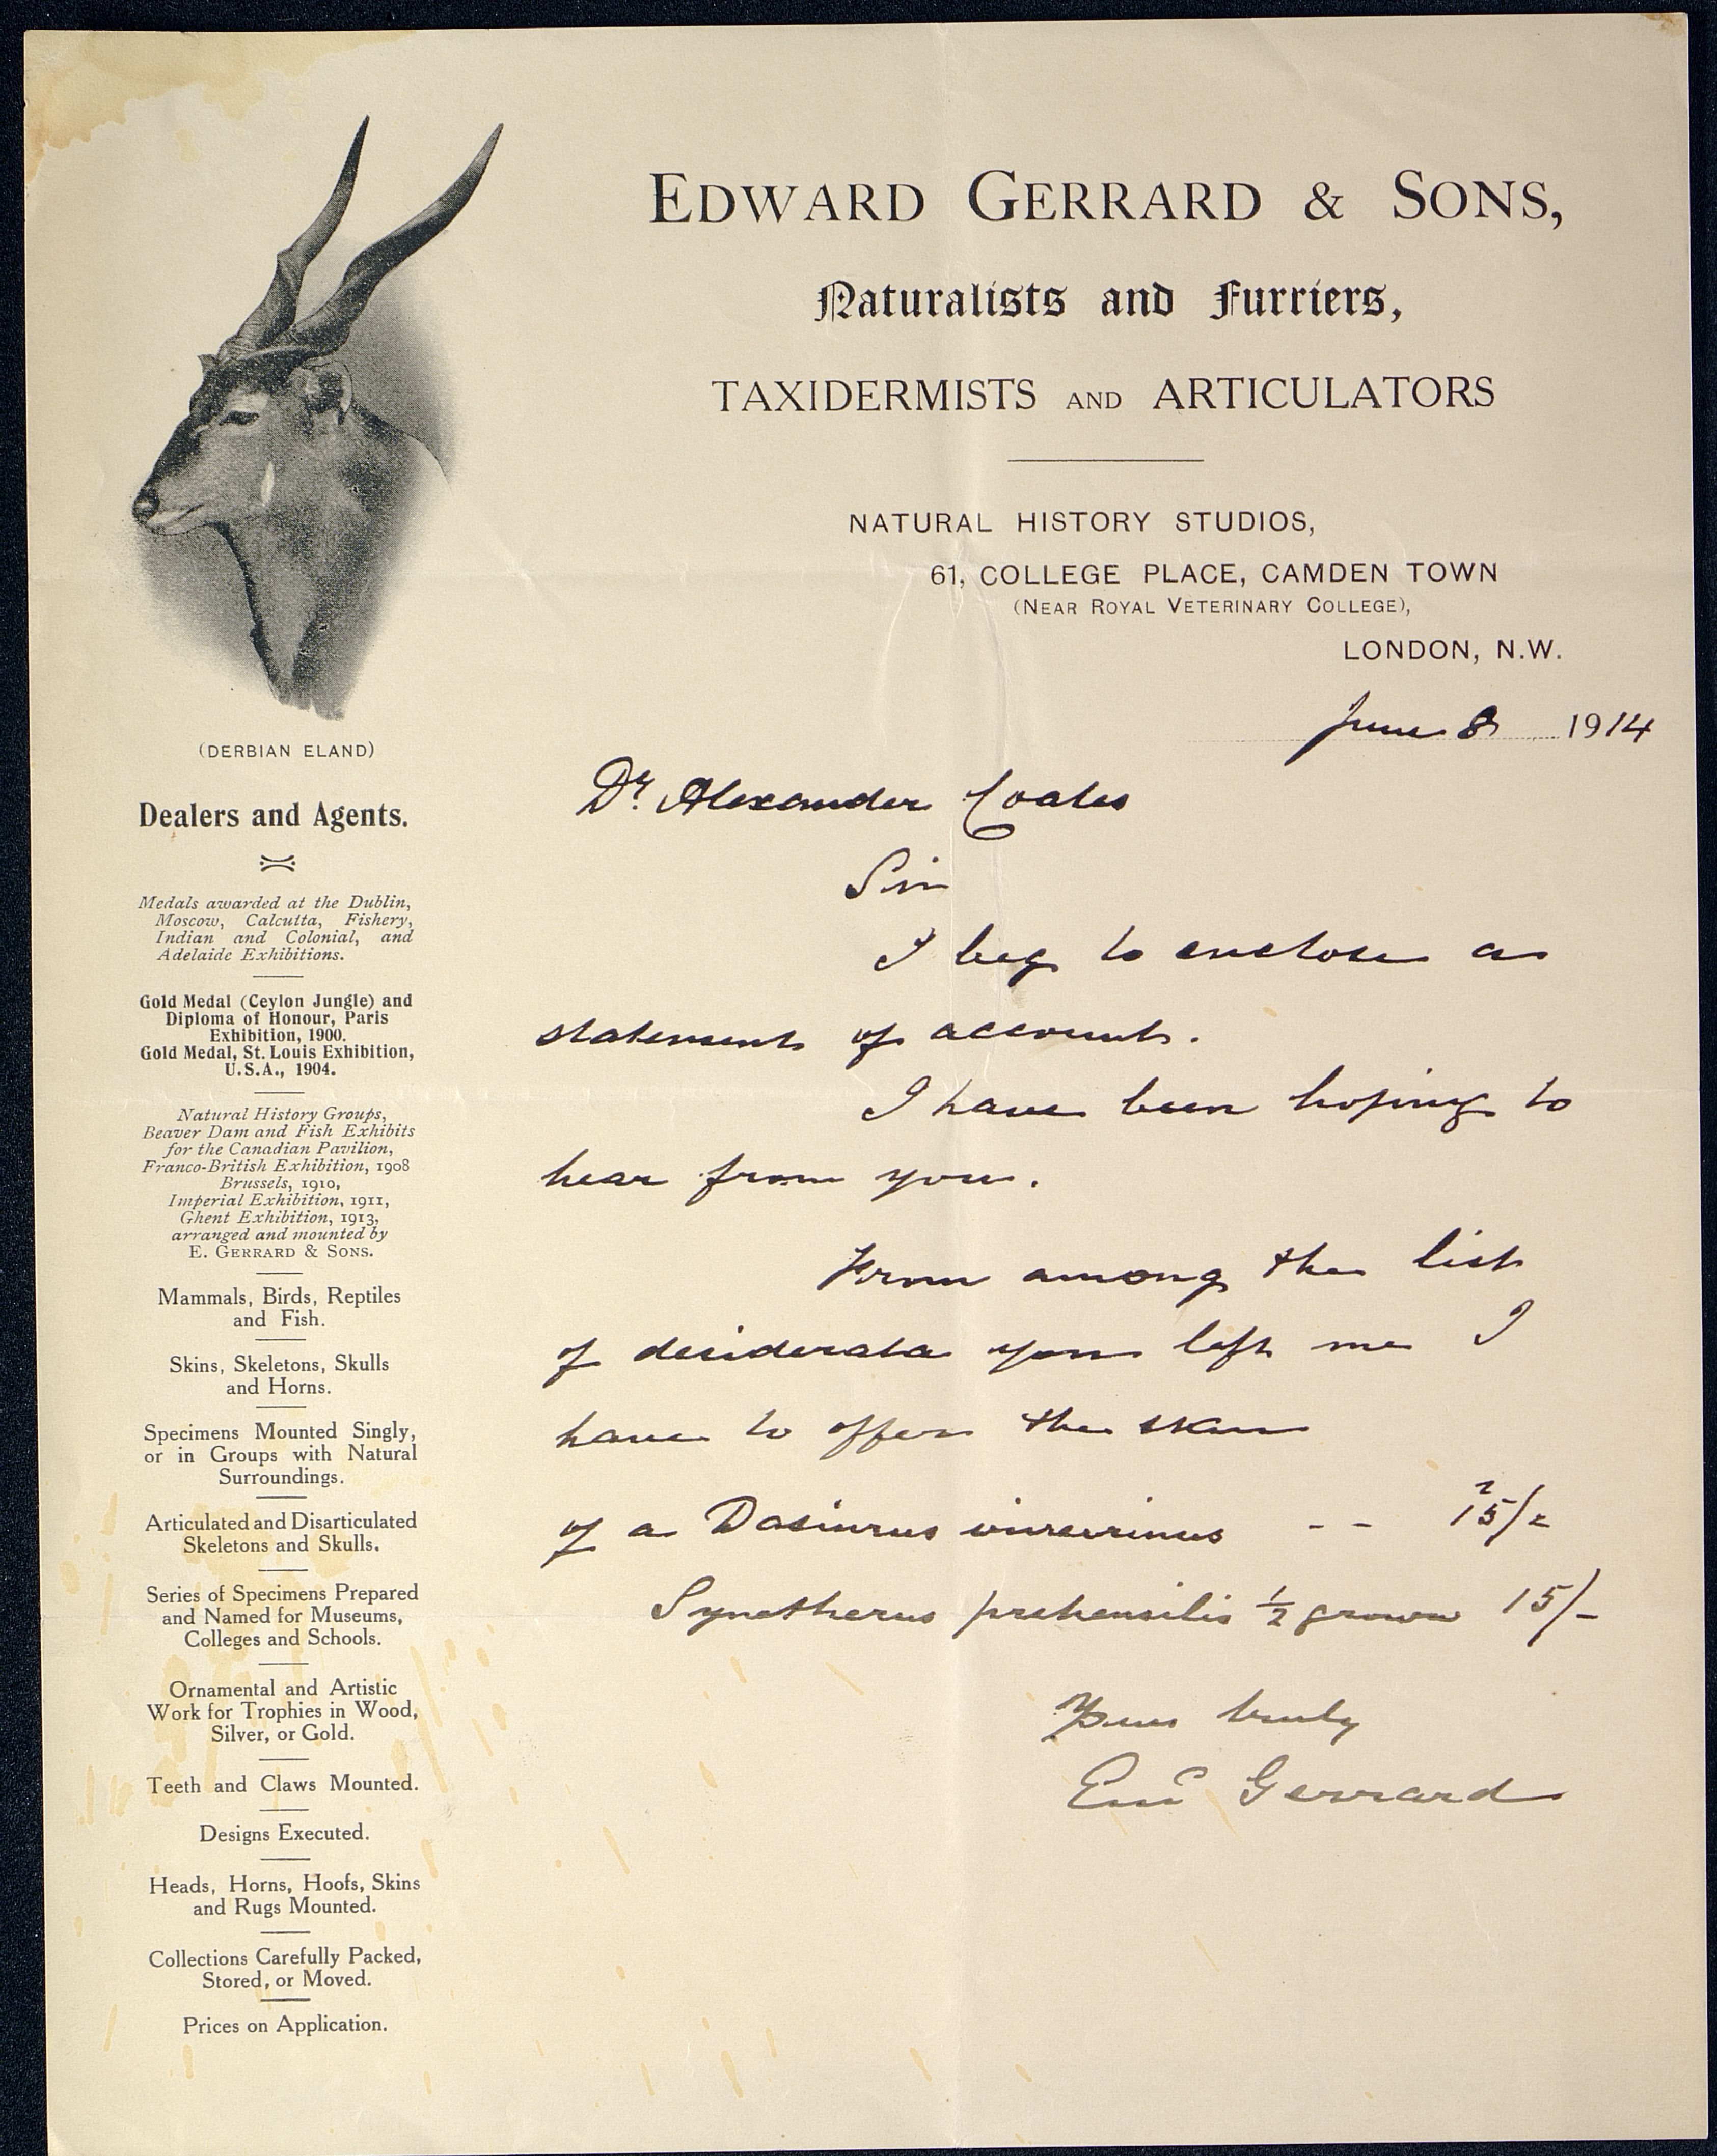 EDWARD GERRARD & SONS,
Naturalists and Furriers,
TAXIDERMISTS AND ARTICULATORS
NATURAL HISTORY STUDIOS,
61, COLLEGE PLACE, CAMDEN TOWN
(NEAR ROYAL VETERINARY COLLEGE),
LONDON, N.W.
June 8 1914
(DERBIAN ELAND)
Dealers and Agents.
Medals awarded at the Dublin,
Moscow, Calcutta, Fishery,
Indian and Colonial, and
Adelaide Exhibitions.
Gold Medal (Ceylon Jungle) and
Diploma of Honour, Paris
Exhibition, 1900.
Gold Medal, St. Louis Exhibition,
U.S.A., 1904.
Natural History Groups,
Beaver Dam and Fish Exhibits
for the Canadian Pavilion,
Franco-British Exhibition, 1908
Brussels, 1910,
Imperial Exhibition, 1911,
Ghent Exhibition, 1913,
arranged and mounted by
E. GERRARD & SONS.
Mammals, Birds, Reptiles
and Fish.
Skins, Skeletons, Skulls
and Horns.
Specimens Mounted Singly,
or in Groups with Natural
Surroundings.
Articulated and Disarticulated
Skeletons and Skulls.
Series of Specimens Prepared
and Named for Museums,
Colleges and Schools.
Ornamental and Artistic
Work for Trophies in Wood,
Silver, or Gold.
Teeth and Claws Mounted.
Designs Executed.
Heads, Horns, Hoofs, Skins
and Rugs Mounted.
Collections Carefully Packed,
Stored, or Moved.
Prices on Application.
Dr. Alexander Coales
Sir
I beg to enclose a
statement of account.
I have been hoping to
hear from you.
From among the list
of desiderata you left me I
have to offer the skin
of a Dasiurus viverrinus - -
Synetherus prehensilis 1/2 grown 15/-
Yours truly
Gerrard